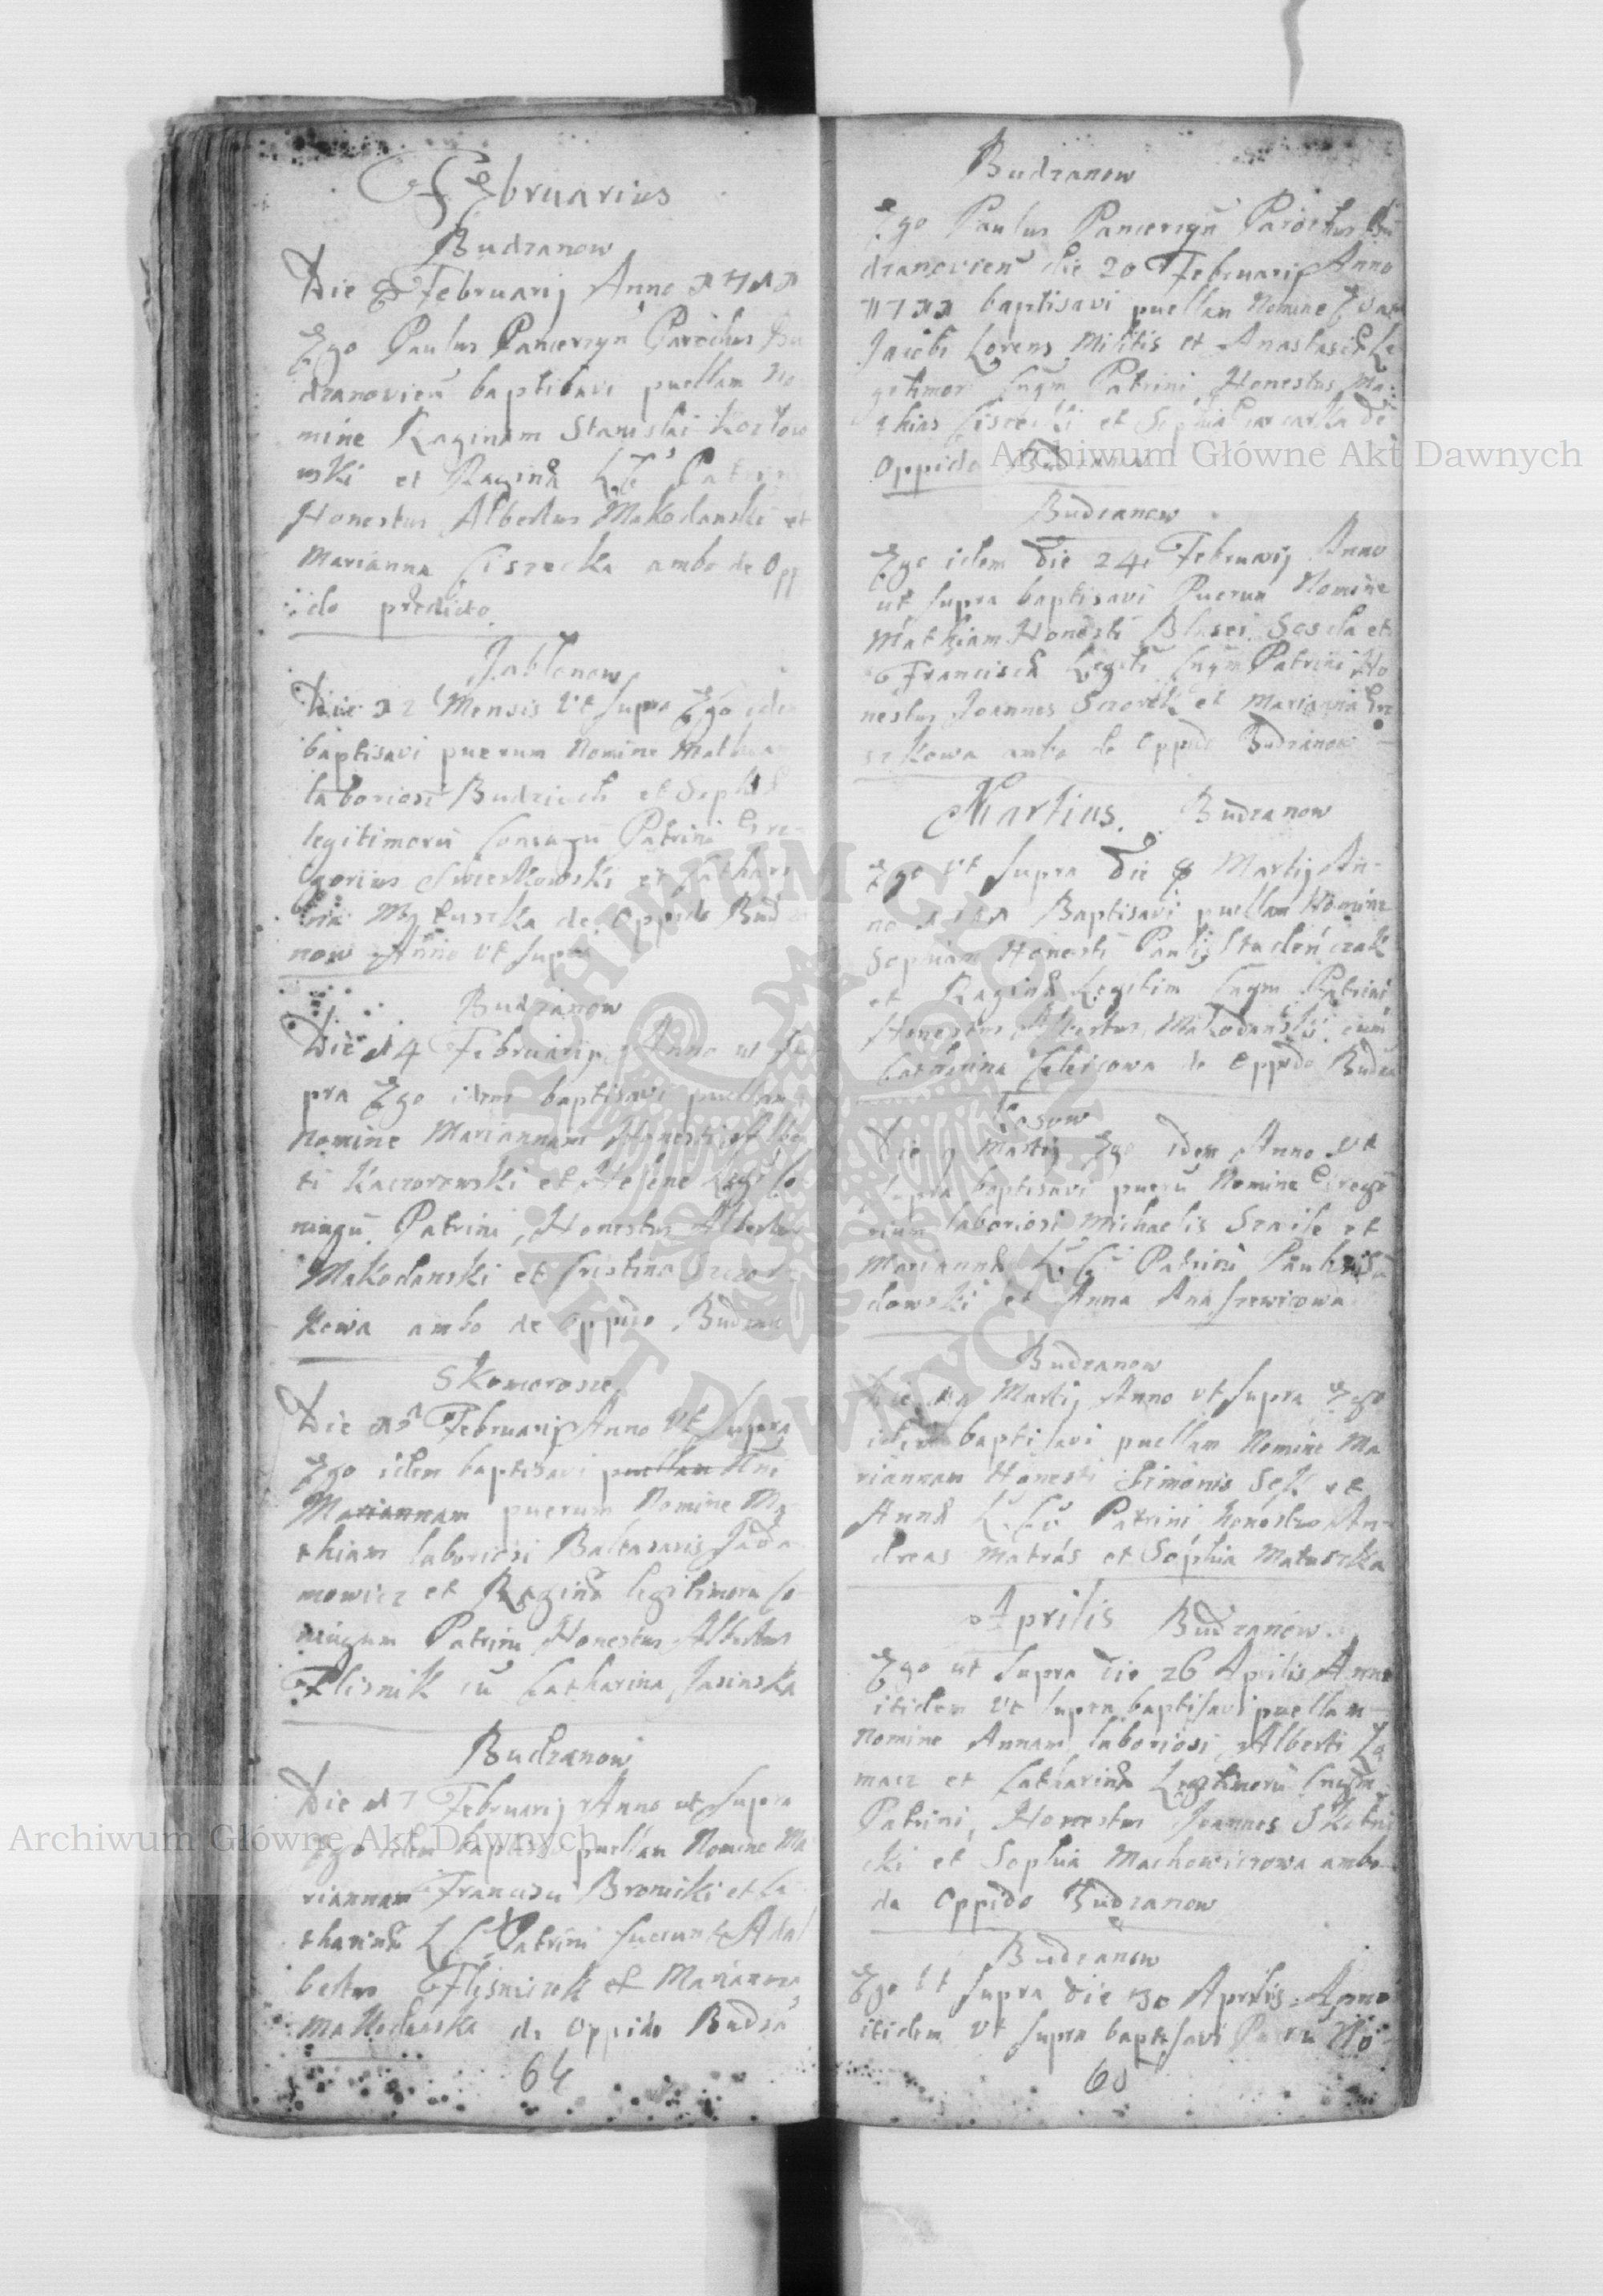 Februarius
Budzanow
Die 8 Februarij Anno 1711
Ego Paulus Pancerzyn Parochus Bu
dzanovien baptisavi puellam No
mine Raginam Stanislai Kozlow
wski et Ragina L: C: Patrini
Honestus Albertus Makodanski et
Marianna Ciszecka ambo de Opp
ido predicto.
Jablonow
Die 12 Mensis Ut supra Ego idem
baptisavi puerum Nomine Mathiam
laboriosi Budziuch et Sophia
legitimoru Conjugu Patrini Gre-
gorius Swierkowski et Cathari
na de Oppido Budza
now Anno Ut supra
Budzanow
Die 14 Februarij Anno ut su
pra Ego idem baptisavi puellam
Nomine Mariannam Honesti Albe
ti Kaczorowski et Helene Legi Co
niugu Patrini, Honestus Albertus
Makodanski et Cristina
kowa ambo de Oppido Budzan
Skomorosze
Die 15 Februarij Anno Ut Supra
Ego idem baptisavi puellam Nni
Mariannam puerum Nomine Ma
thiam laboriosi Baltasaris Sado
mowicz et Regina legitimoru Co
niugum Patrini Honestus Albertus
Flisnik cu Catharina Jasinska
Budzanow
Die 17 Februarij Anno ut Supra
Ego idem baptisavi puellam Nomine Ma
riannam Francisci Bronicki et Ca
tharina L C Patrini fuerunt Adal
bertus Flisniczek et Marianna
Makodanska de Oppido Budza
64
Budzanow
Ego Paulus Pancerzyn Parochus Bu
dzanovien die 20 Februarij Anno
1711 baptisavi puellam Nomine Evam
Jacobi Lorens Militis et Anastasia Le
gitimor Cnym Patrini Honestus Ma
thias Ciszecki et Sophia de
Oppido Budzanow
Budzanow
Ego idem Die 24 Februarij Anno
ut supra baptisavi Puerum Nomine
Mathiam Honesti Blasei et
Francisca Legiti Cnym Patrini Ho
nestus Joannes Sczorek et Marianna
szkowa ambo de Oppido Budzanow
Martius. Budzanow
Ego Ut Supra Die 8 Martij An-
no 1711 Baptisavi puellam Nomine
Sophiam Honesti Pauli Studenczak
et Ragina Legitim Cnym Patrini
Honestus Albertus Makodanski cum
Catharina de Oppido Budza
Kosow
Die 9 Martij Ego idem Anno Ut
supra baptisavi pueru Nomine Grego
rium laboriosi Michaelis Szaile et
Marianna L: C: Patrini Paulus
dowski et Anna Anaszewicowa
Budzanow
Die 19 Martij Anno Ut supra Ego
idem baptisavi puellam Nomine Ma
riannam Honesti Simonis Sek et
Anna L: C: Patrini Honestus An-
dreas Matras et Sophia Matuszka
Aprilis Budzanow.
Ego ut Supra Die 26 Aprilis Anno
itidem Ut Supra baptisavi puellam
Nomine Annam laboriosi Alberti La
macz et Catharina Legitimoru Cnym
Patrini, Honestus Joannes Skotni
cki et Sophia Machowiczowa ambo
de Oppido Budzanow
Budzanow
Ego Ut Supra Die 30 Aprilis Anno
itidem Ut supra baptisavi Pueru No
65
Archiwum Główne Akt Dawnych
Archiwum Główne Akt Dawnych
ARCHIWUM GŁÓWNE AKT DAWNYCH